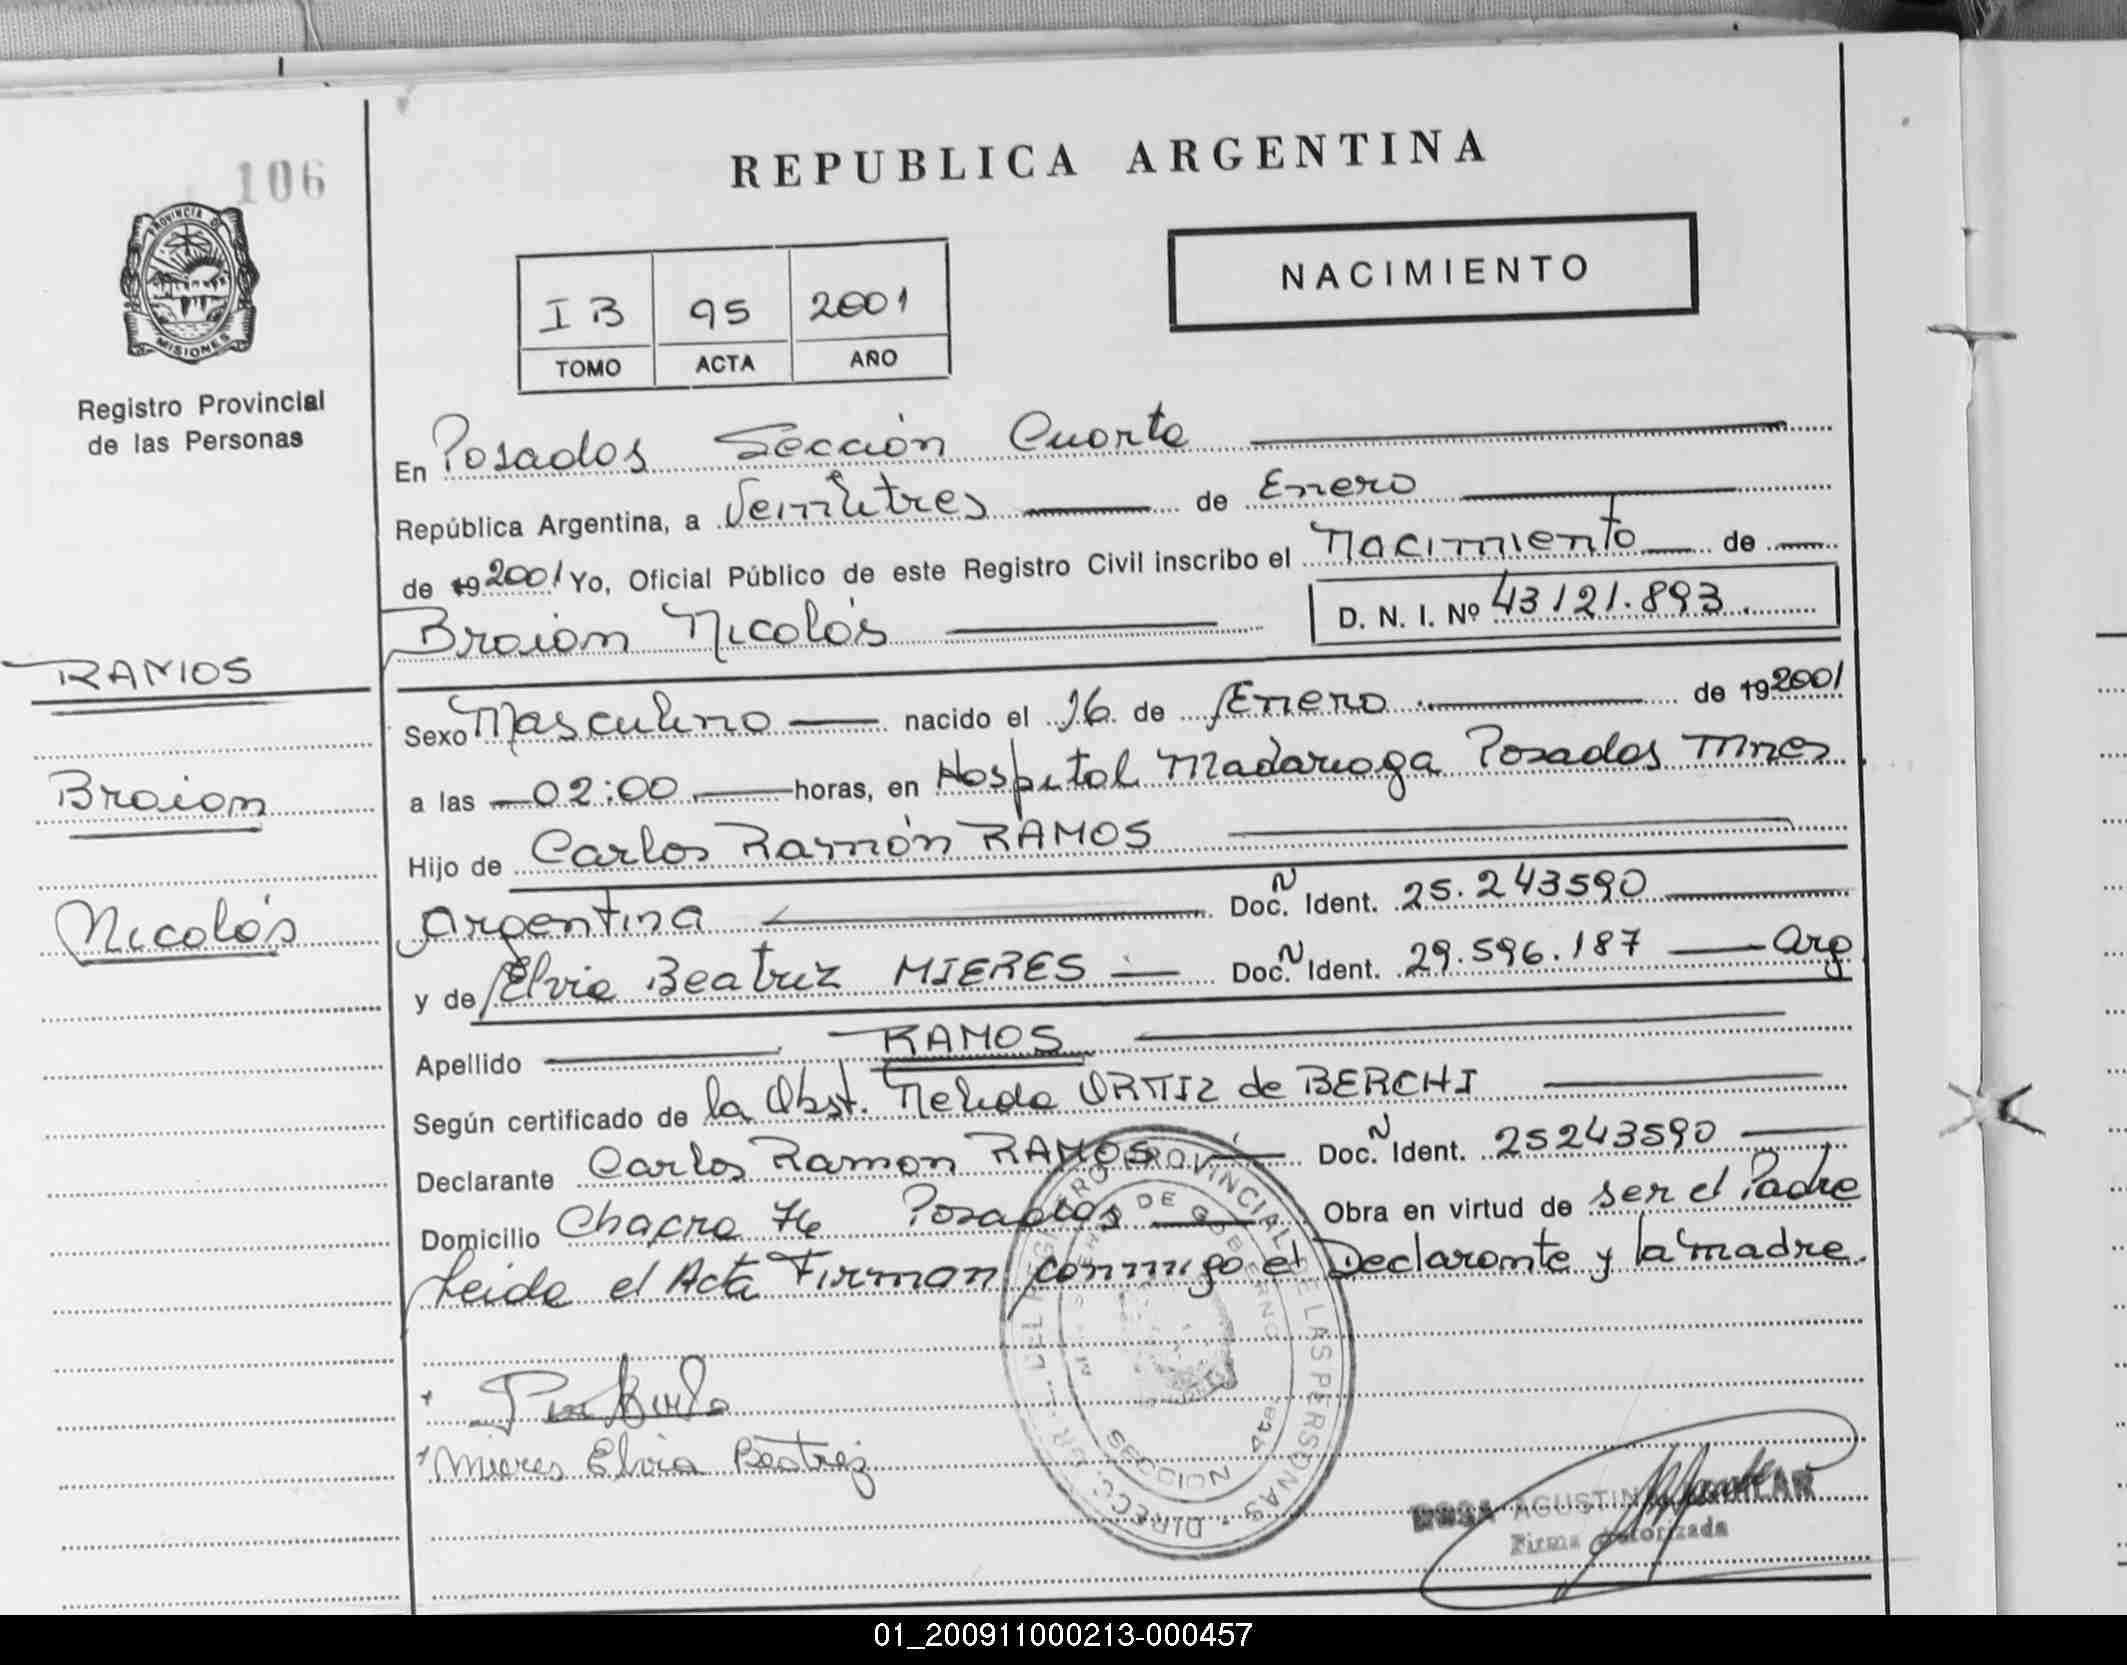 106
PROVINCIA DE
MISIONES
Registro Provincial
de las Personas
RAMOS
Braian
Nicolás
REPUBLICA ARGENTINA
NACIMIENTO
I B 95 2001
TOMO ACTA AÑO
En Posadas Sección Cuarta
República Argentina, a Veintitres de Enero
de 19 2001 Yo, Oficial Público de este Registro Civil inscribo el Nacimiento de
Braian Nicolás D. N. I. Nº 43121.893
Sexo Masculino nacido el 16 de Enero de 19 2001
a las 02:00 horas, en Hospital Madariaga Posadas Mnes
Hijo de Carlos Ramón RAMOS
Argentina Doc. N Ident. 25.243590
y de Elvia Beatriz MIERES Doc. N Ident. 29.596.187 Arg
Apellido RAMOS
Según certificado de la Obst. Nelida ORTIZ de BERCHI
Declarante Carlos Ramon RAMOS Doc. N Ident. 25243590
Domicilio Chacra 76 Posadas Obra en virtud de ser el Padre
Leida el Acta Firman conmigo el Declarante y la madre.
Mieres Elvia Beatriz
DIRECC. GR. DEL REGISTRO PROVINCIAL DE LAS PERSONAS
DE GOBIERNO
SECCION 4ta
ROSA AGUSTIN
Firma Autorizada
01_200911000213-000457